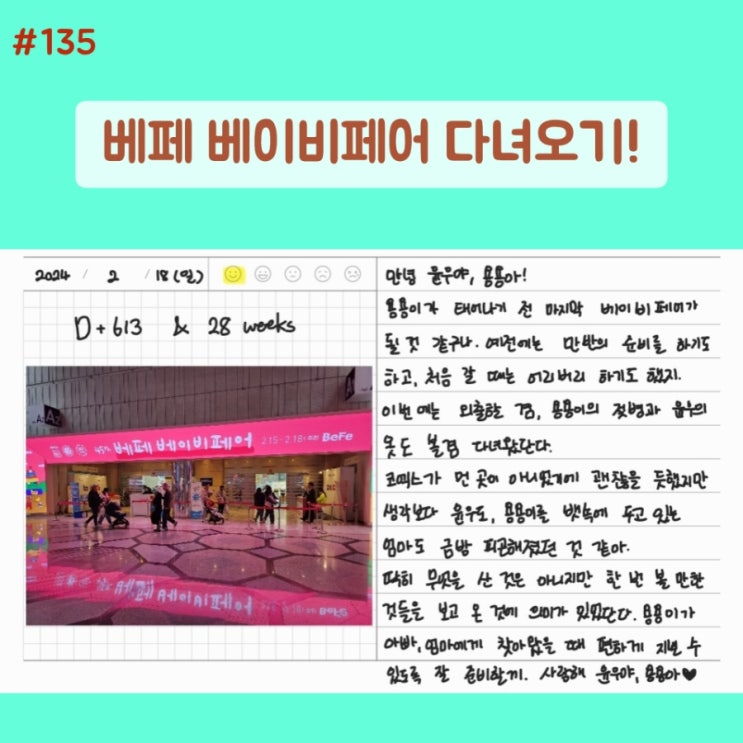 #135
베페 베이비페어 다녀오기!
2024 / 2 / 18(일)
D+613 & 28 weeks
A
45th 베페 베이비페어 2.15-2.18 BeFe
안녕 윤우야, 용용아!
용용이가 태어나기 전 마지막 베이비페어가
될 것 같구나. 예전에는 만반의 준비를 하기도
하고, 처음 갈 때는 어리버리 하기도 했지.
이번에는 외출하는 겸, 용용이의 젖병과 윤우의
옷도 볼겸 다녀왔단다.
코엑스가 먼 곳이 아니었기에 괜찮을 듯했지만
생각보다 윤우도, 용용이를 뱃속에 두고 있는
엄마도 금방 피곤해졌던 것 같아.
딱히 무엇을 산 것은 아니지만 한 번 볼 만한
것들을 보고 온 것에 의미가 있었단다. 용용이가
아빠, 엄마에게 찾아왔을 때 편하게 지낼 수
있도록 잘 준비할게. 사랑해 윤우야, 용용아♥